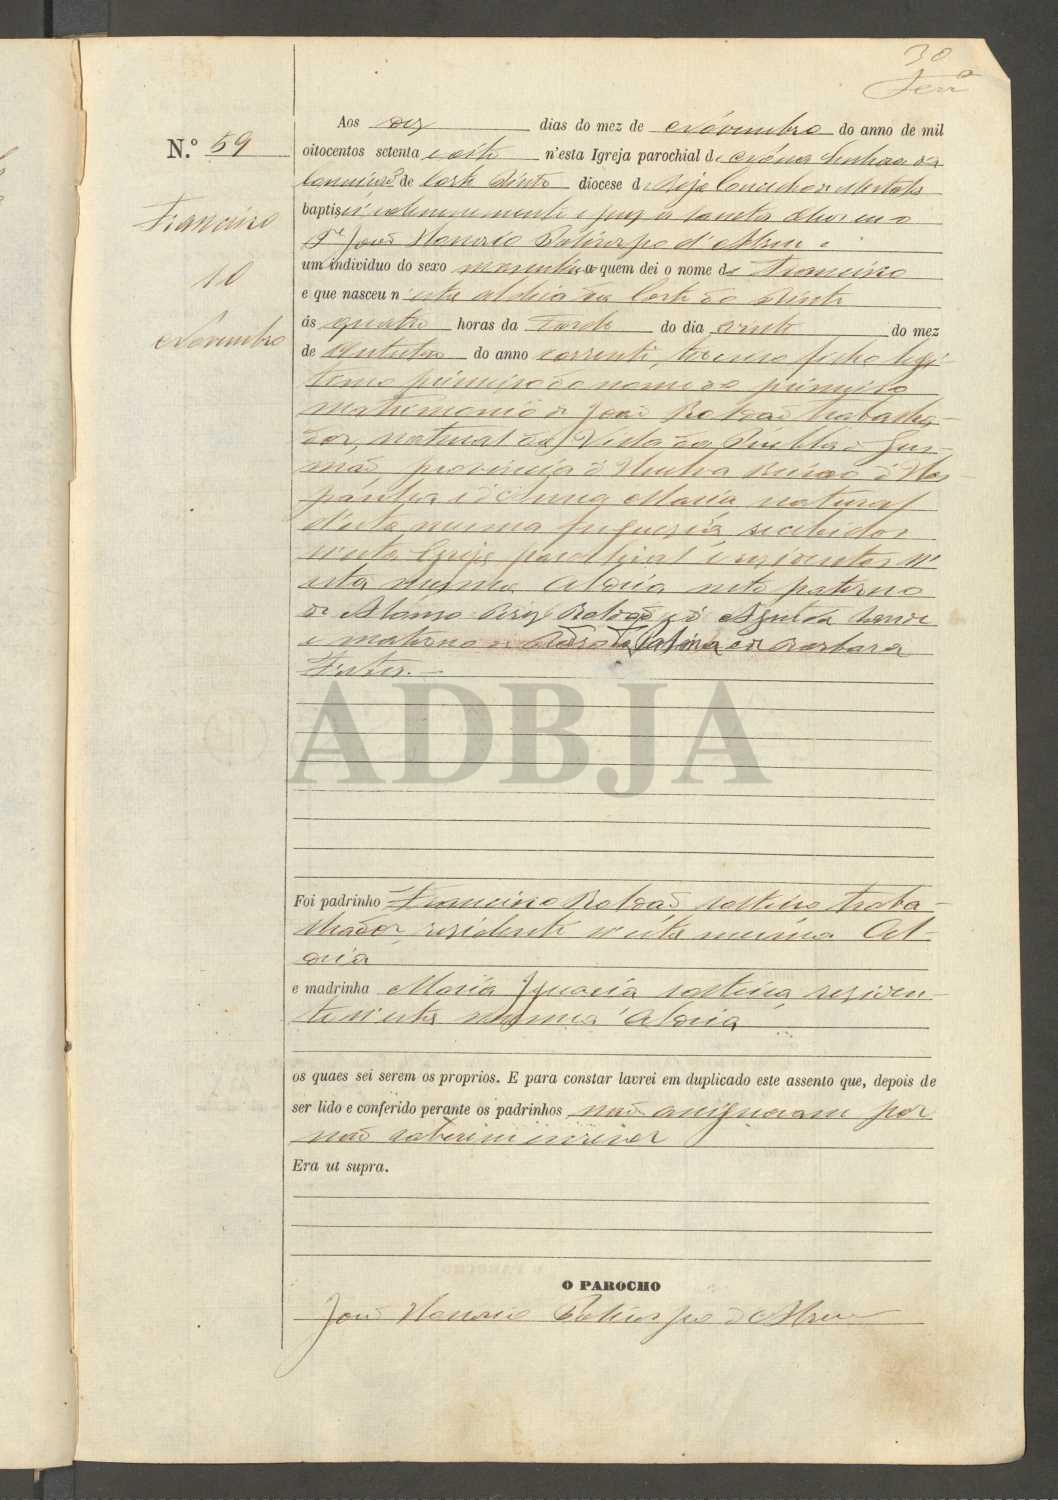 30
Ferrª
N.º 59
Francisco
10
Novembro
Aos dez dias do mez de Novembro do anno de mil
oitocentos setenta e oito n'esta Igreja parochial de Nossa Senhora da
Conceição de Corte Pinto diocese de Beja Concelho de Mertola
baptisei solemnemente e puz os sanctos oleos eu o
Pe João Honorio Policarpo d'Abreu a
um individuo do sexo masculino a quem dei o nome de Francisco
e que nasceu n'esta aldeia da Corte do Pinto
ás quatro horas da tarde do dia vinte do mez
de Outubro do anno corrente, terceiro filho legi-
timo primeiro do nome de primeiro
matrimonio de João Roldão trabalha-
dor, natural da Villa da Puebla de Gus-
mão, provincia d'Huelva Reino d'Hes-
panha e d'Anna Maria natural
d'esta mesma freguezia recebidos
n'esta Igreja parochial e residentes n'
esta mesma Aldeia neto paterno
de Alonso Roldão e d' Agueda
e materno de Palma e de Barbara
Foi padrinho Francisco Roldão solteiro traba-
lhador, residente n'esta mesma Al-
deia
e madrinha Maria Ignacia solteira, residen-
te n'esta mesma Aldeia
os quaes sei serem os proprios. E para constar lavrei em duplicado este assento que, depois de
ser lido e conferido perante os padrinhos não assignaram por
não saberem escrever
Era ut supra.
O PAROCHO
João Honorio Policarpo d'Abreu
ADBJA